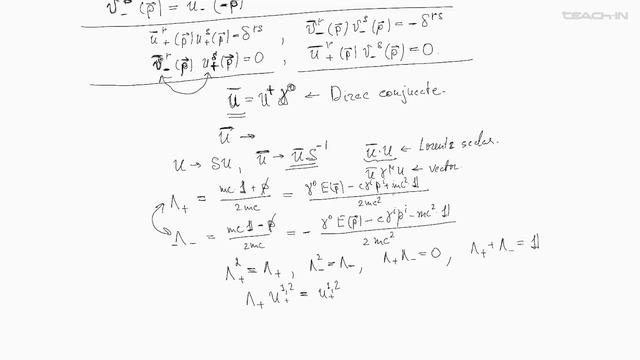 TEACH-IN
v₋ˢ(p⃗) = u₋ (-p⃗)
ū₊ʳ(p⃗) u₊ˢ(p⃗) = δʳˢ , v̄₋ʳ(p⃗) v₋ˢ(p⃗) = - δʳˢ
v̄₋ʳ(p⃗) u₊ˢ(p⃗) = 0 , ū₊ʳ(p⃗) v₋ˢ(p⃗) = 0.
ū = u⁺ γ⁰ ← Dirac conjucate.
ū →
u → Su, ū → ūS⁻¹ ū·u ← Lorentz scalar.
ūγᵘu ← vector
Λ₊ = (mc 𝟙 + p̸)/(2mc) = (γ⁰E(p⃗) - cγⁱpⁱ + mc² 𝟙)/(2mc²)
Λ₋ = (mc 𝟙 - p̸)/(2mc) = - (γ⁰E(p⃗) - cγⁱpⁱ - mc² 𝟙)/(2mc²)
Λ₊² = Λ₊ , Λ₋² = Λ₋ , Λ₊Λ₋ = 0 , Λ₊ + Λ₋ = 𝟙
Λ₊ u₊^{1,2} = u₊^{1,2}